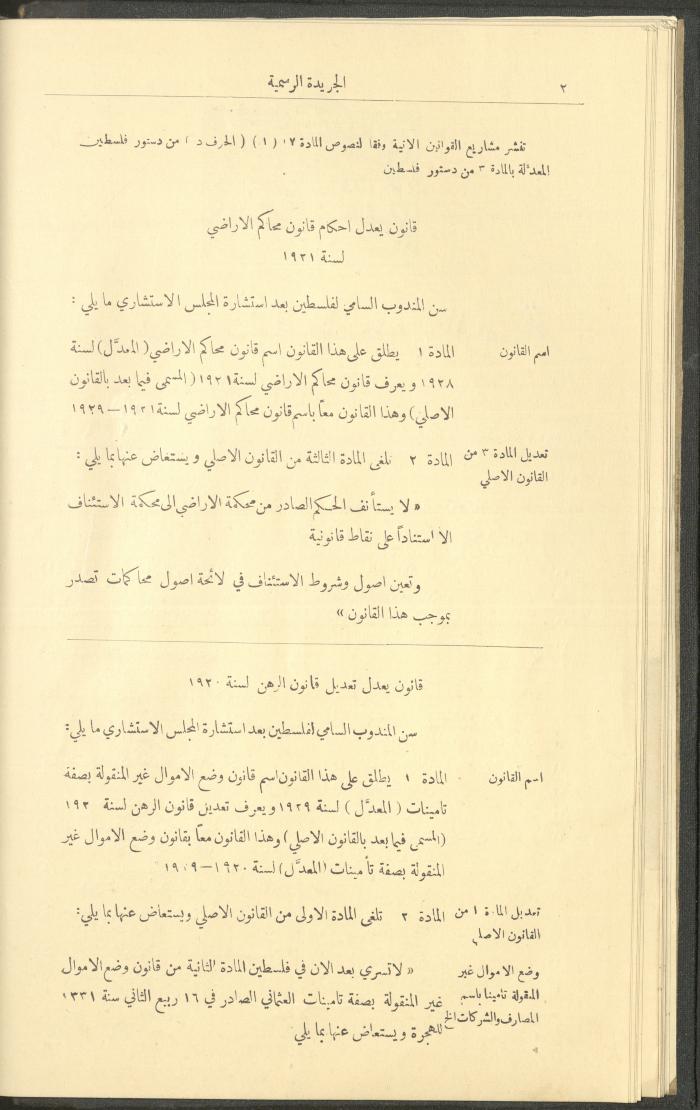 ٢
الجريدة الرسمية
تنشر مشاريع القوانين الاتية وفقا لنصوص المادة ١٧ (١) (الحرف د) من دستور فلسطين
المعدلة بالمادة ٣ من دستور فلسطين
قانون يعدل احكام قانون محاكم الاراضي
لسنة ١٩٢١
سن المندوب السامي لفلسطين بعد استشارة المجلس الاستشاري ما يلي :
اسم القانون
المادة ١ يطلق على هذا القانون اسم قانون محاكم الاراضي (المعدَّل) لسنة
١٩٢٨ ويعرف قانون محاكم الاراضي لسنة ١٩٢١ (المسمى فيما بعد بالقانون
الاصلي) وهذا القانون معاً باسم قانون محاكم الاراضي لسنة ١٩٢١—١٩٢٩
تعديل المادة ٣ من
القانون الاصلي
المادة ٢ تلغى المادة الثالثة من القانون الاصلي ويستعاض عنها بما يلي :
« لا يستأنف الحكم الصادر من محكمة الاراضي الى محكمة الاستئناف
الا استناداً على نقاط قانونية
وتعين اصول وشروط الاستئناف في لائحة اصول محاكمات تصدر
بموجب هذا القانون »
قانون يعدل تعديل قانون الرهن لسنة ١٩٢٠
سن المندوب السامي لفلسطين بعد استشارة المجلس الاستشاري ما يلي:
اسم القانون
المادة ١ يطلق على هذا القانون اسم قانون وضع الاموال غير المنقولة بصفة
تامينات (المعدَّل) لسنة ١٩٢٩ ويعرف تعديل قانون الرهن لسنة ١٩٢٠
(المسمى فيما بعد بالقانون الاصلي) وهذا القانون معاً بقانون وضع الاموال غير
المنقولة بصفة تأمينات (المعدَّل) لسنة ١٩٢٠—١٩٢٩
تعديل المادة ١ من
القانون الاصلي
المادة ٢ تلغى المادة الاولى من القانون الاصلي ويستعاض عنها بما يلي:
وضع الاموال غير
المنقولة تأمينا باسم
المصارف والشركات الخ
« لا تسري بعد الان في فلسطين المادة الثانية من قانون وضع الاموال
غير المنقولة بصفة تامينات العثماني الصادر في ١٦ ربيع الثاني سنة ١٣٣١
للهجرة ويستعاض عنها بما يلي